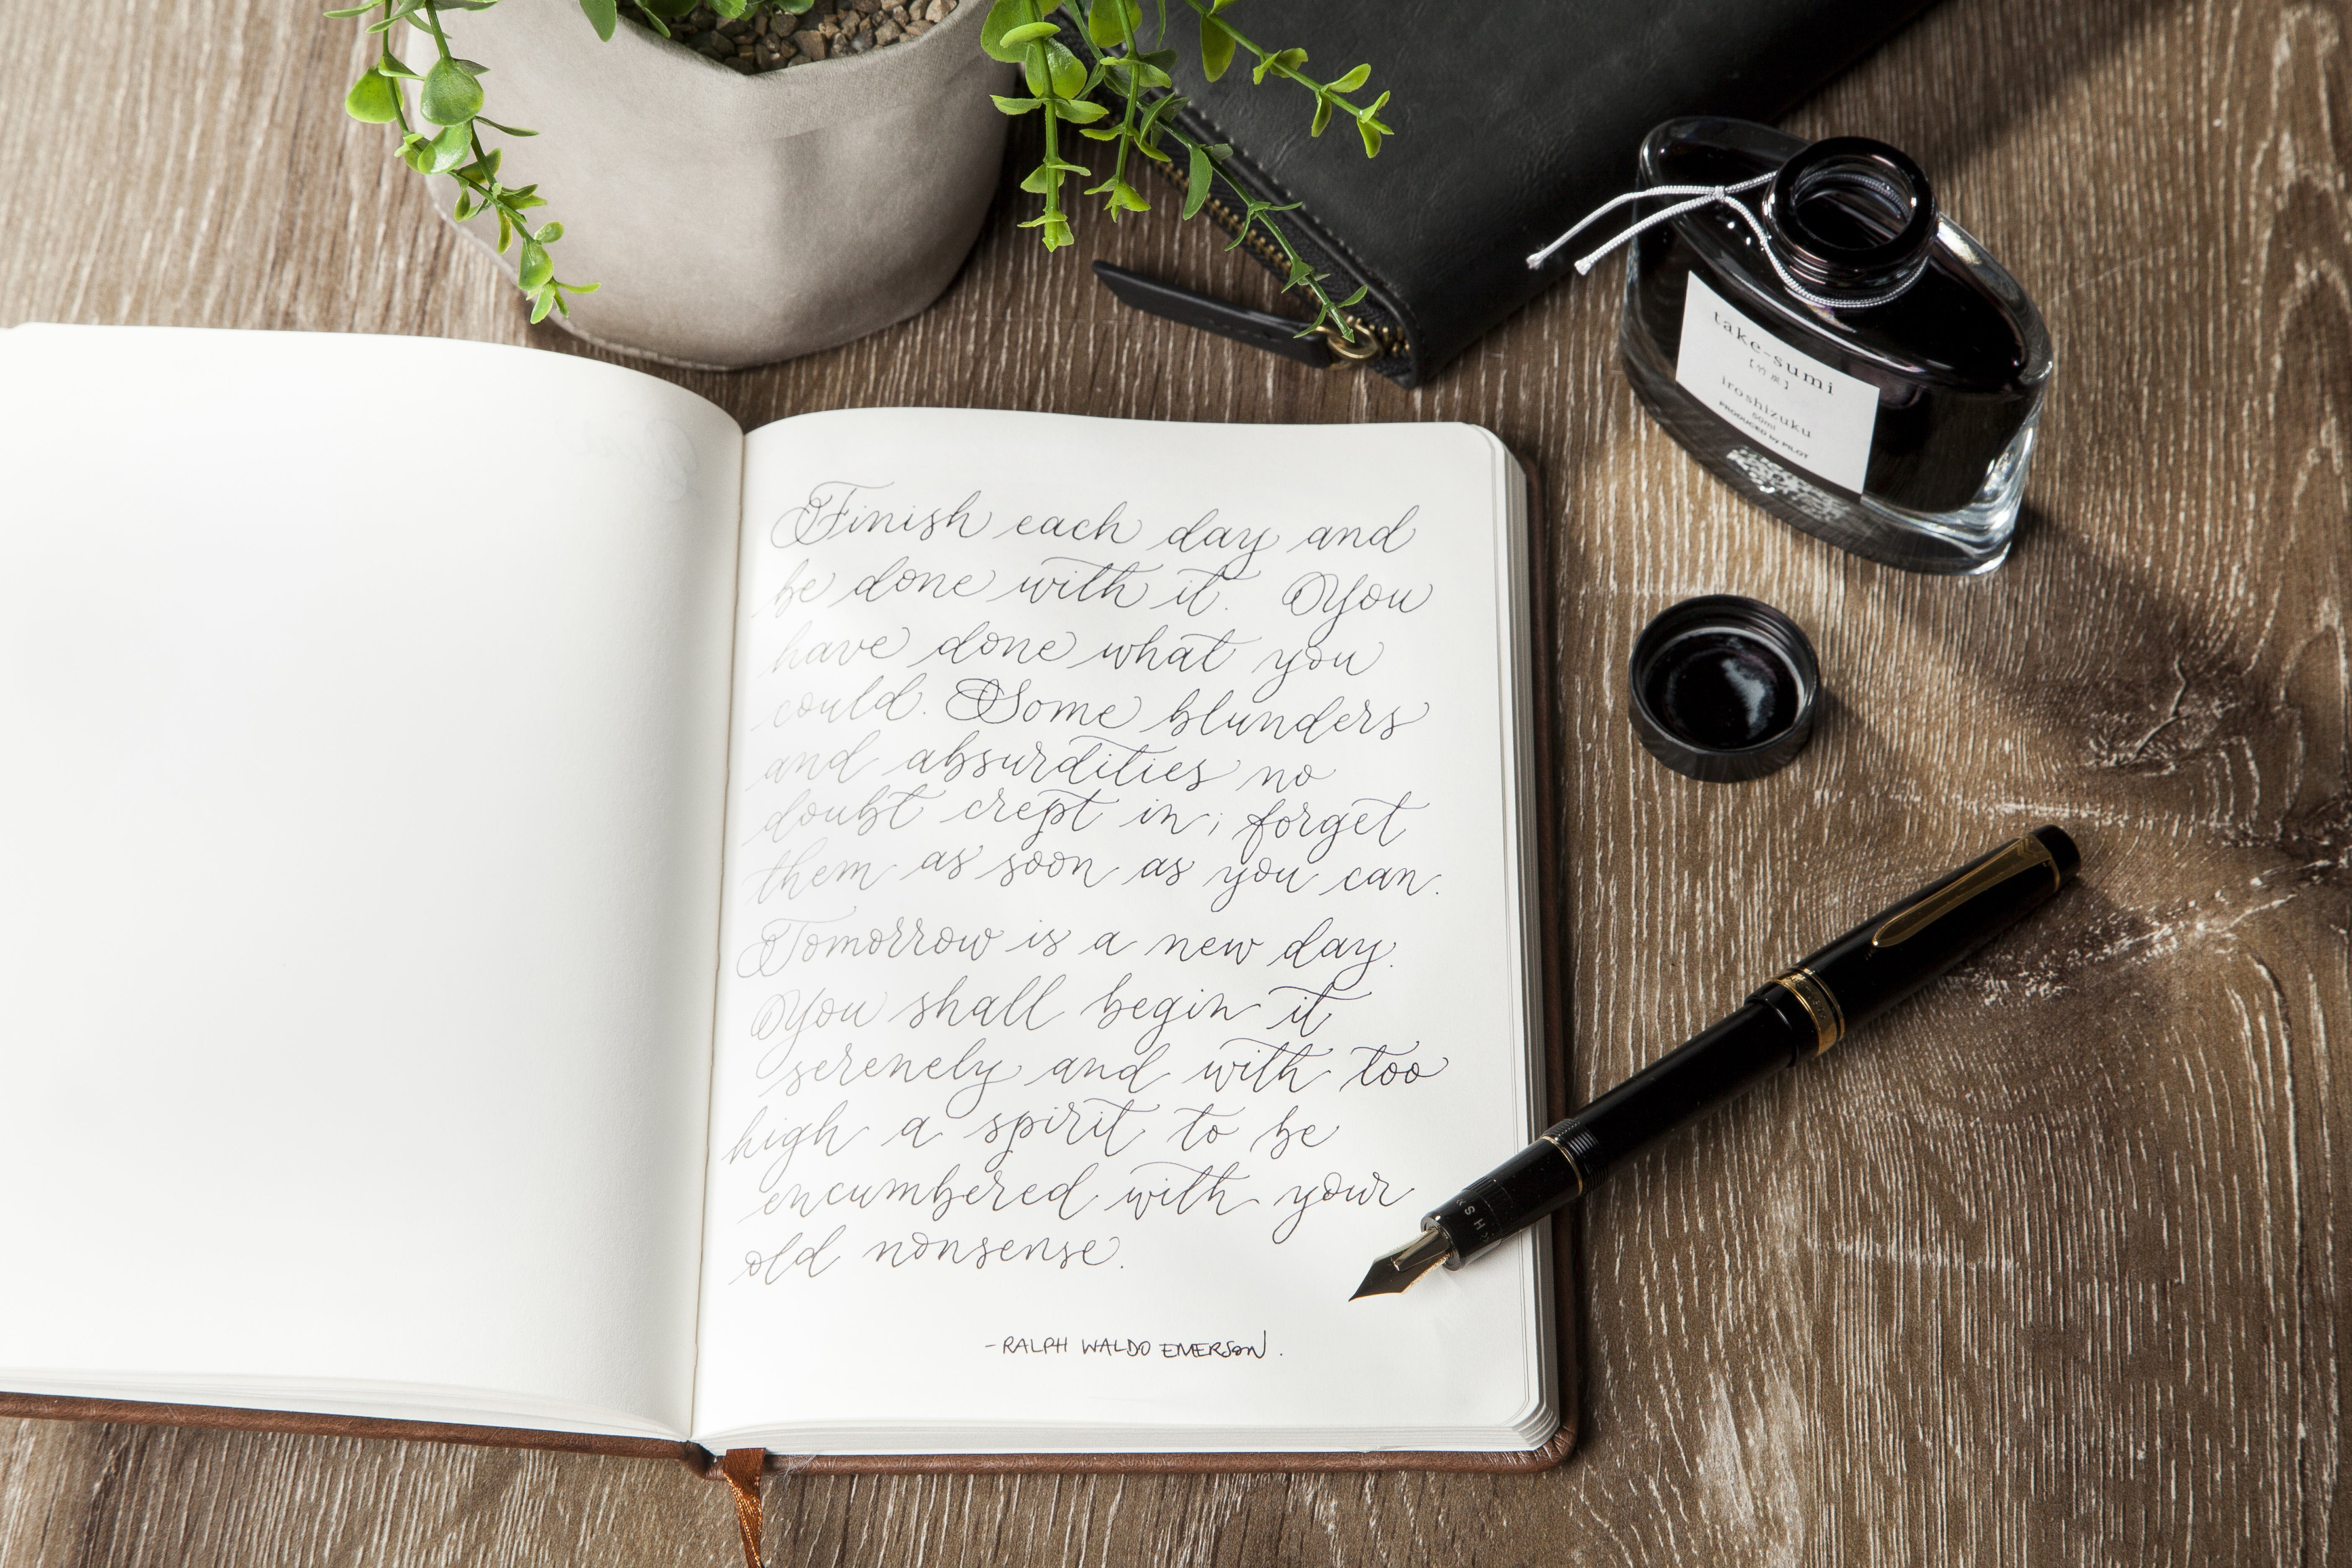 Finish each day and
be done with it. You
have done what you
could. Some blunders
and absurdities no
doubt crept in; forget
them as soon as you can.
Tomorrow is a new day.
You shall begin it
serenely and with too
high a spirit to be
encumbered with your
old nonsense.
-RALPH WALDO EMERSON.
take-sumi
【竹炭】
iroshizuku
50ml
PRODUCED by PILOT